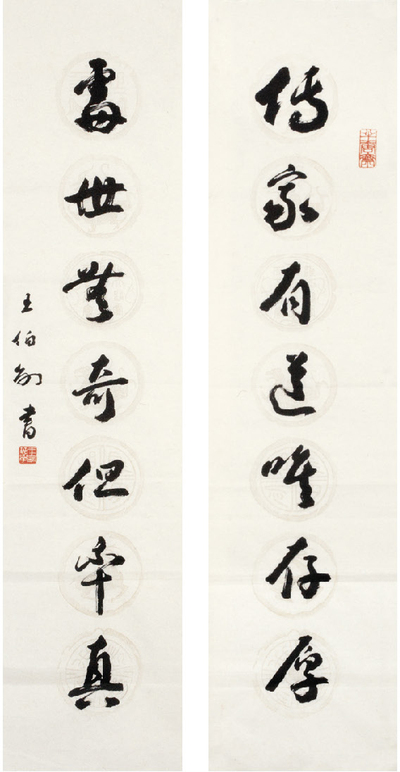 傳家有道唯存厚
處世無奇但率真
王伯敏書